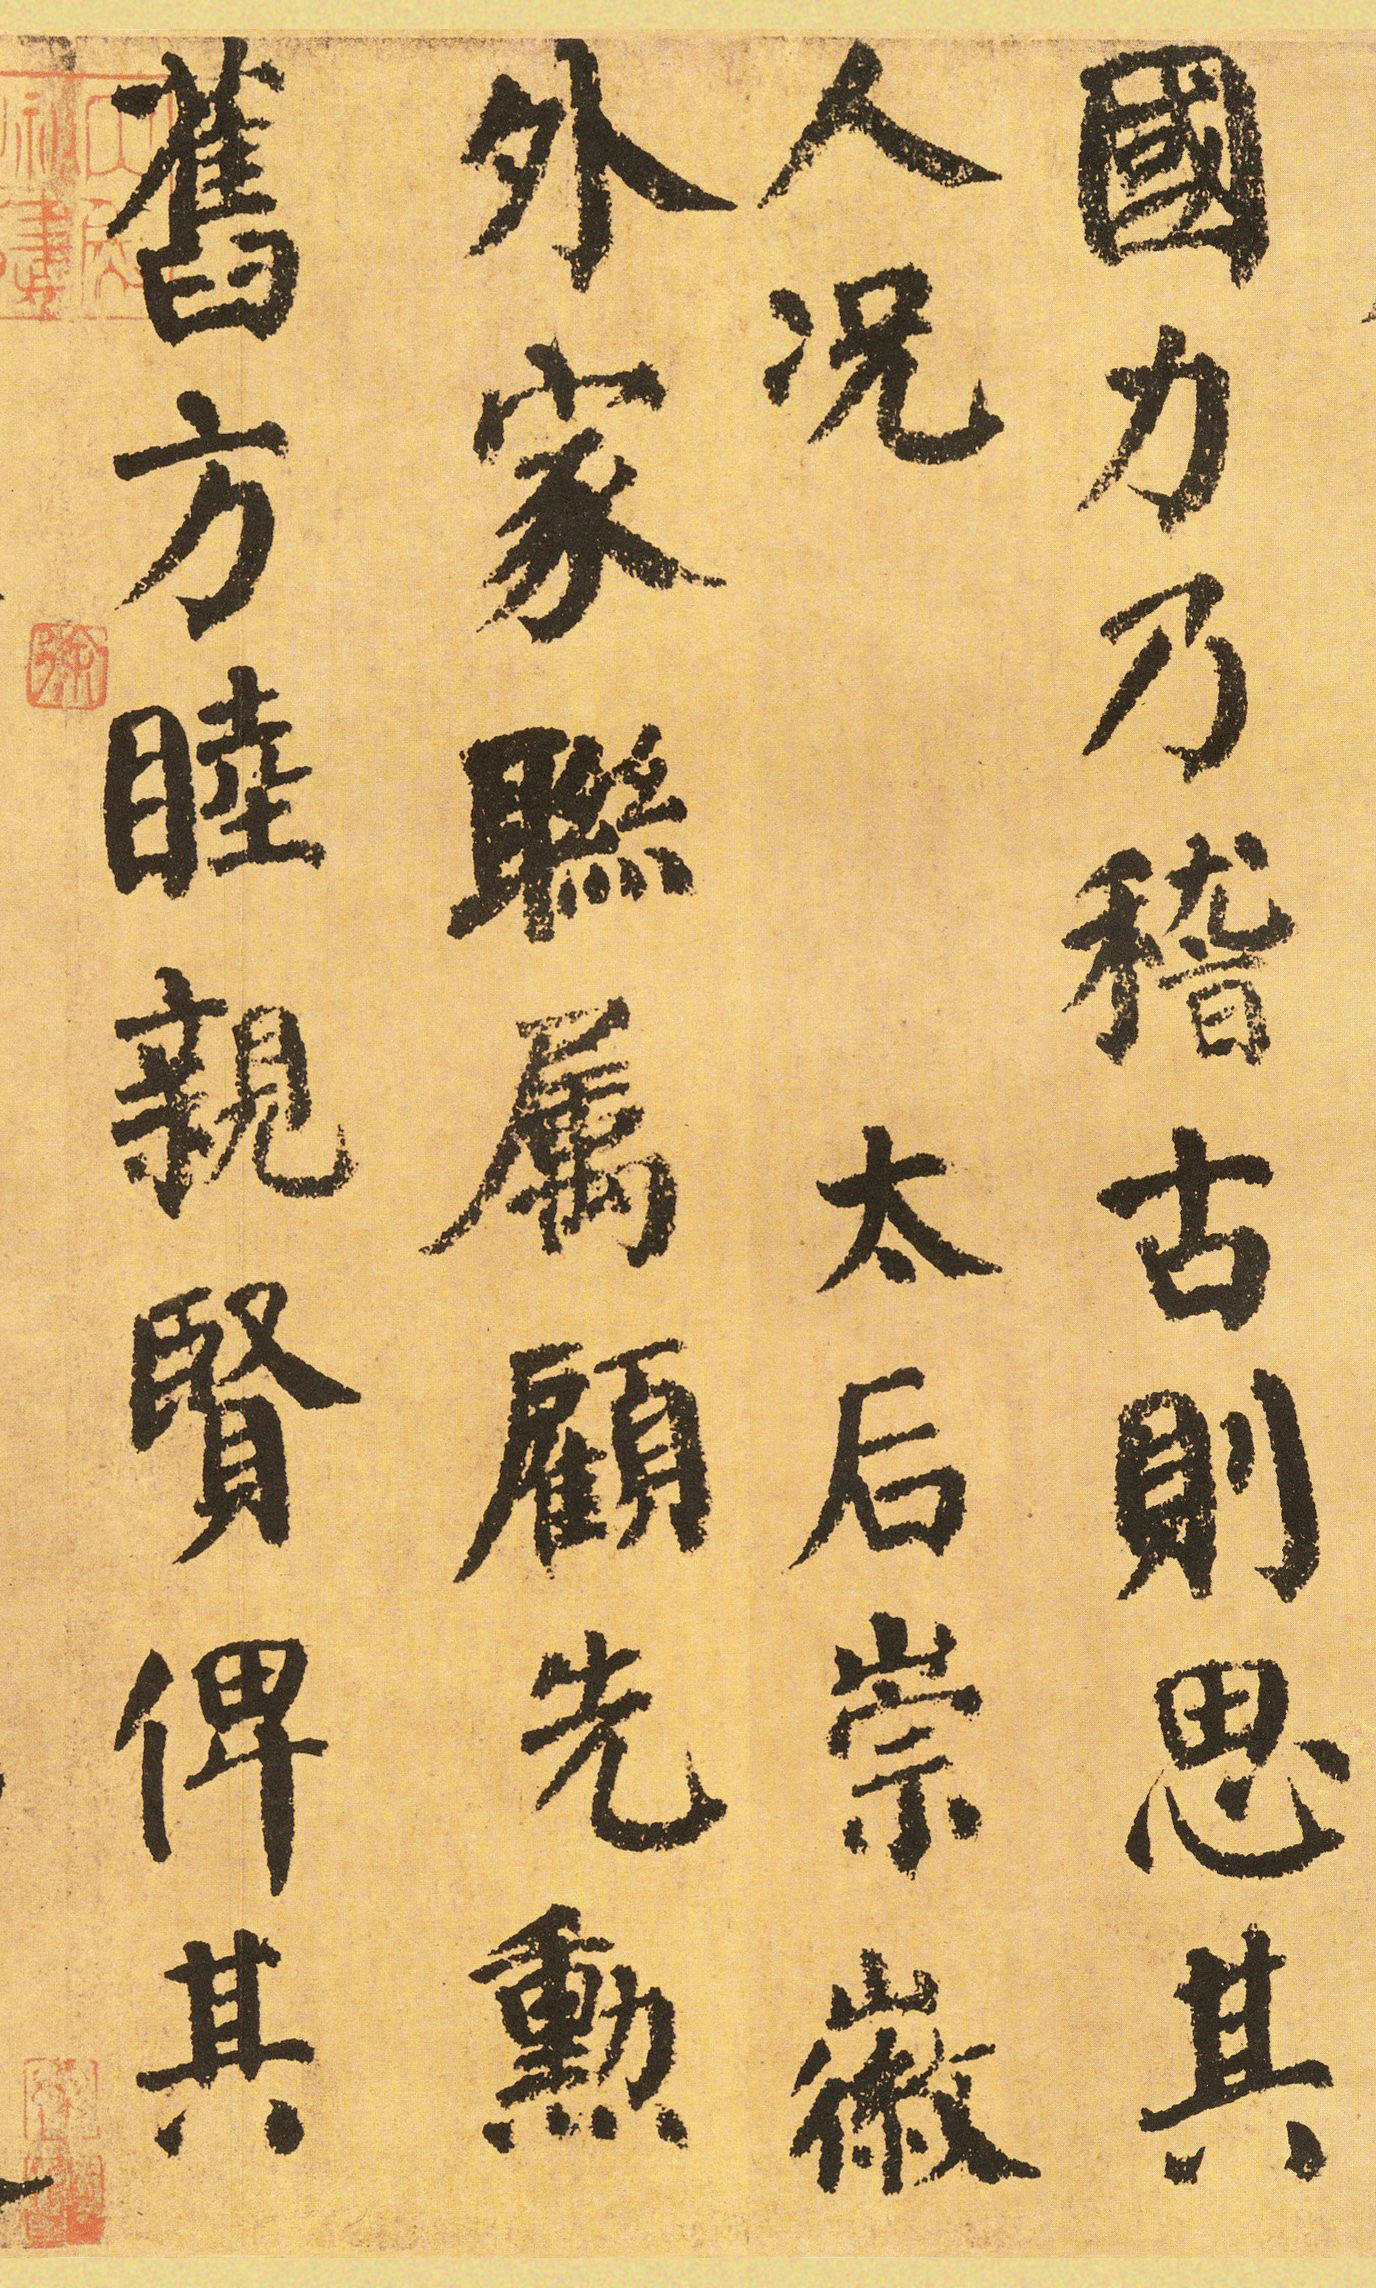 國力乃稽古則思其
人況　太后崇徽
外家聯属顧先勳
舊方睦親賢俾其